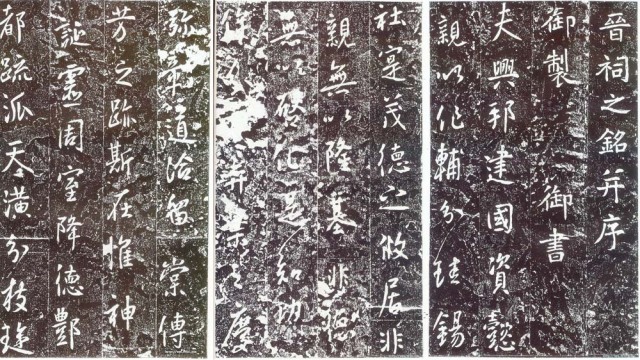 晉祠之銘并序
御製 御書
夫興邦建國資懿
親以作輔分珪錫
社寔茂德之攸居非
親無以隆基非德
無以啟化是知功
奕葉之慶
彌彰道洽留棠傳
芳之跡斯在惟神
誕靈周室降德酆
都疏派天潢分枝璇